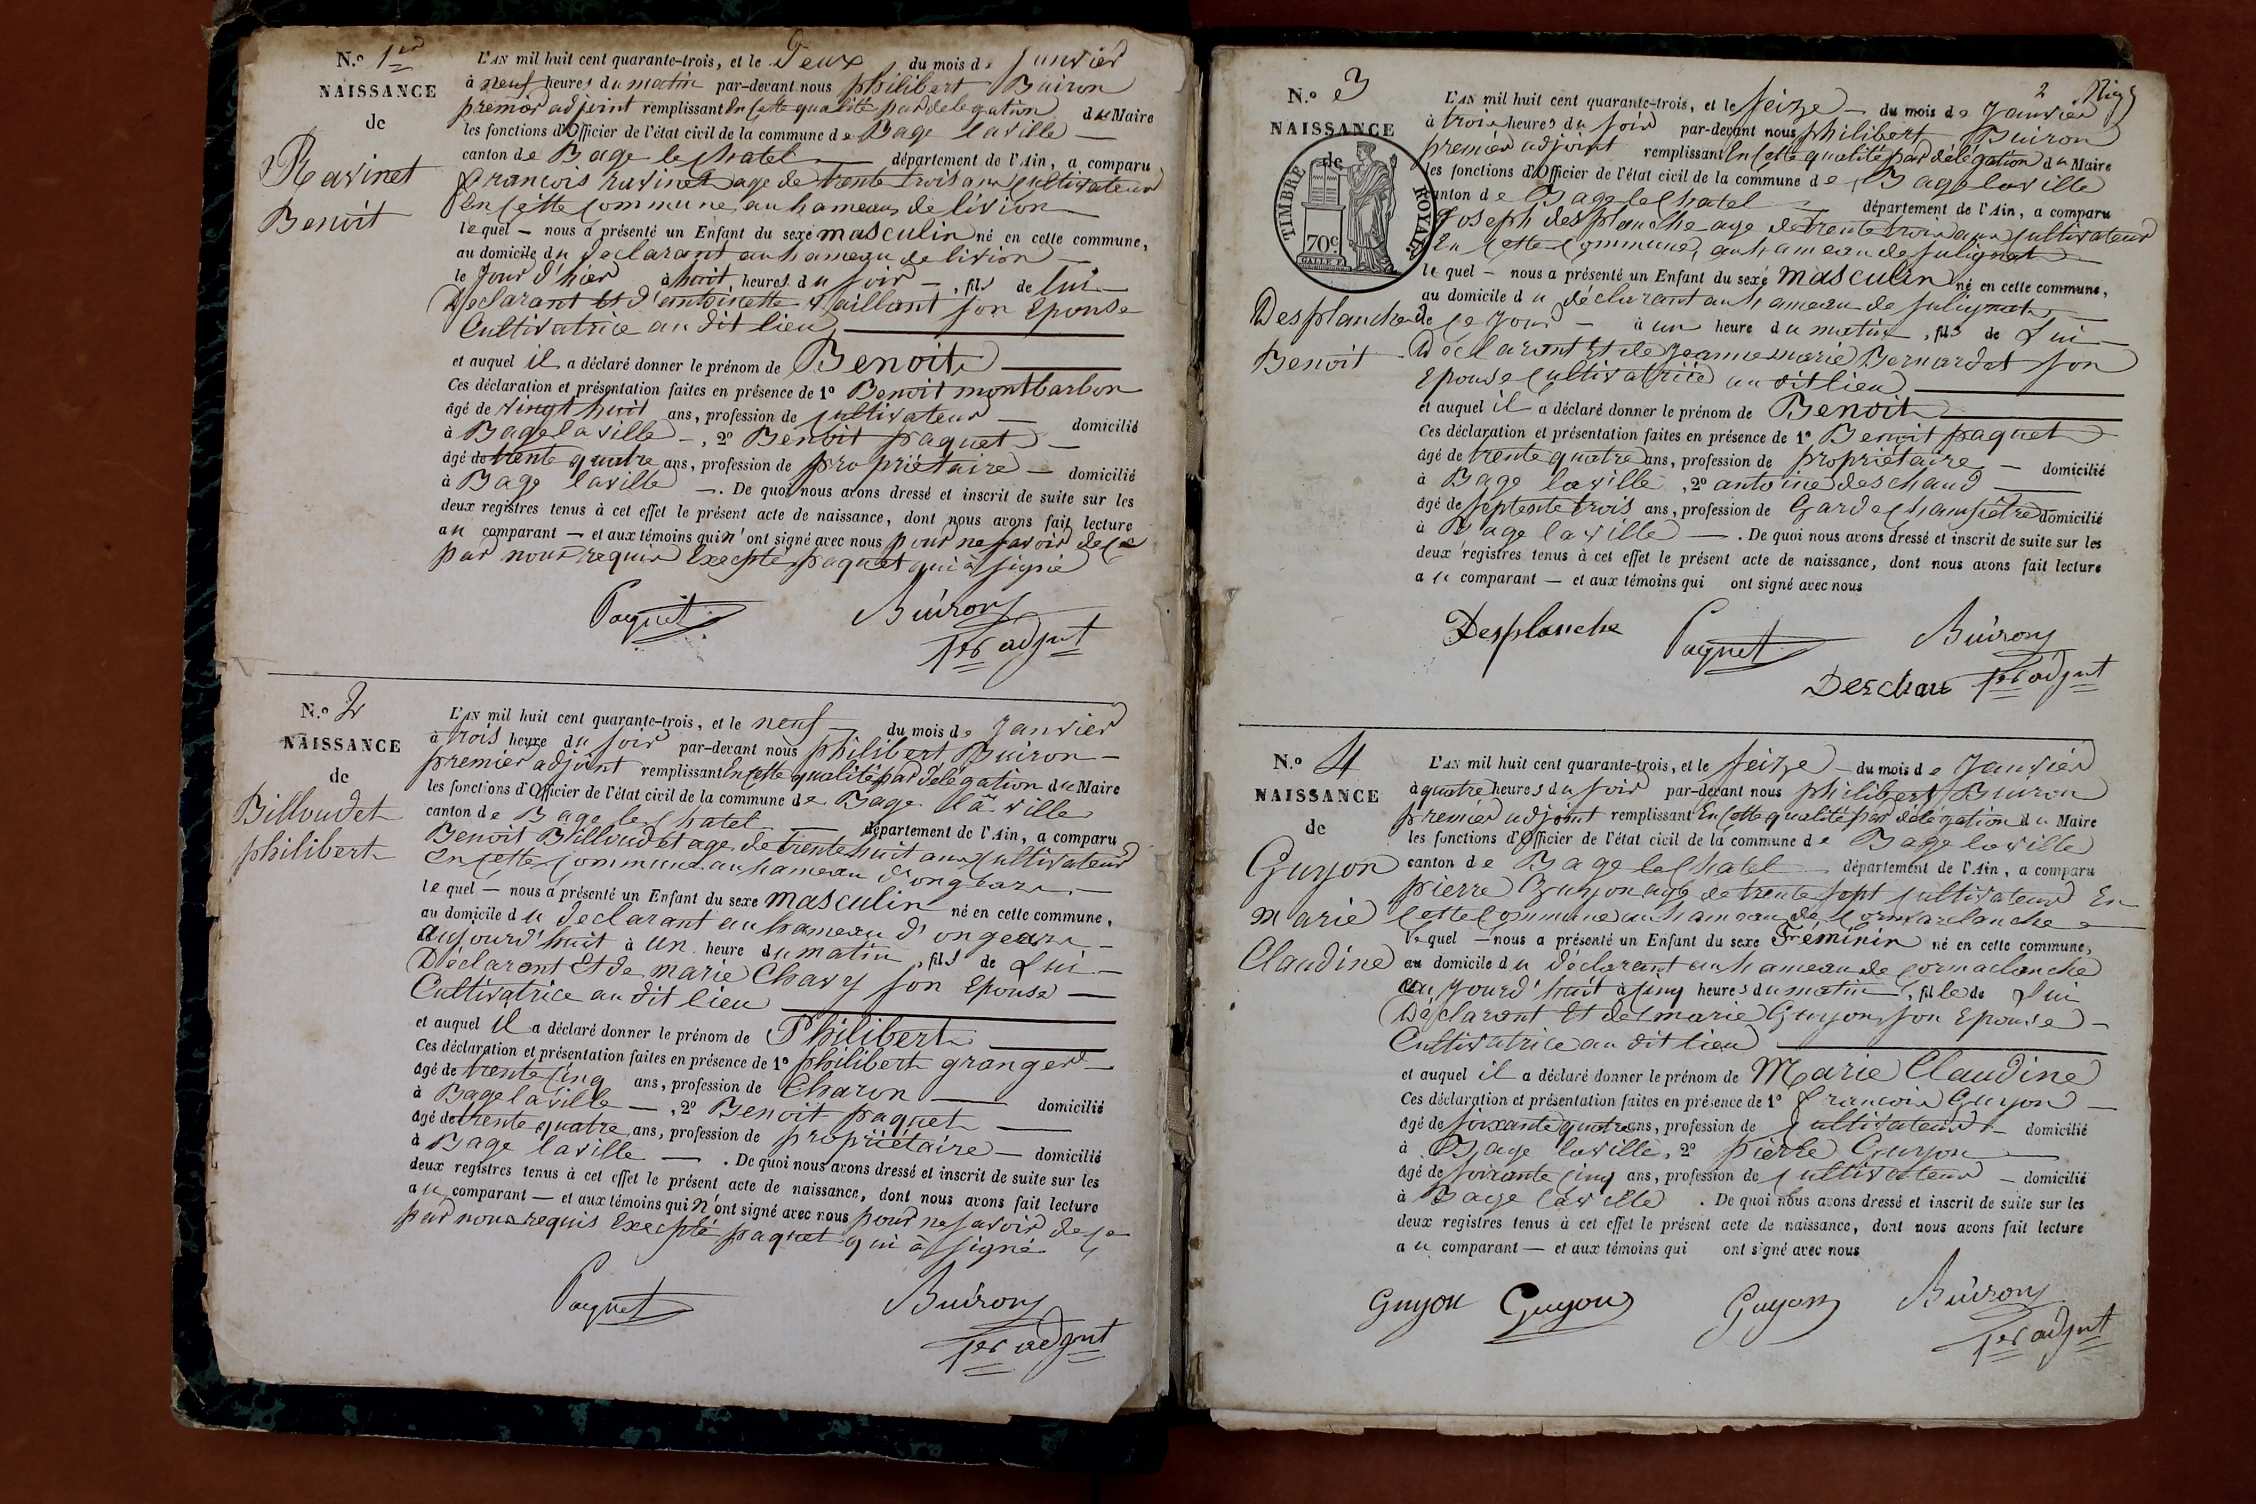 N.o 1er
NAISSANCE
de
Ravinet
Benoit
L'AN mil huit cent quarante-trois, et le Deux du mois de Janvier
à neuf heures du matin par-devant nous philibert Buiron
premier adjoint remplissant En cette qualité par délégation du Maire
les fonctions d'Officier de l'état civil de la commune de Bage laville
canton de Bage le Chatel département de l'Ain, a comparu
francois ravinet age de trente trois ans Cultivateur
En Cette Commune au hameau de livion
lequel — nous a présenté un Enfant du sexe masculin né en cette commune,
au domicile du declarant au hameau de livion
le Jour d'hier à huit heures du soir, fils de lui
Declarant Et d'antoinette Vaillant son Epouse
Cultivatrice au dit lieu
et auquel il a déclaré donner le prénom de Benoit
Ces déclaration et présentation faites en présence de 1o Benoit montbarbon
âgé de vingt huit ans, profession de Cultivateur domicilié
à Bage laville —, 2o Benoit paquet
âgé de trente quatre ans, profession de propriétaire — domicilié
à Bage laville —. De quoi nous avons dressé et inscrit de suite sur les
deux registres tenus à cet effet le présent acte de naissance, dont nous avons fait lecture
au comparant — et aux témoins qui n'ont signé avec nous pour ne savoir de ce
par nous requis Excepté paquet qui à signé
Paquet Buiron
1er adjnt
N.o 2
NAISSANCE
de
Billoudet
philibert
L'AN mil huit cent quarante-trois, et le neuf du mois de Janvier
à trois heure du soir par-devant nous philibert Buiron —
premier adjoint remplissant En cette qualité par délégation du Maire
les fonctions d'Officier de l'état civil de la commune de Bage la ville
canton de Bage le Chatel département de l'Ain, a comparu
Benoit Billoudet age de trente huit ans Cultivateur
En Cette Commune au hameau d'ongeare
lequel — nous a présenté un Enfant du sexe masculin né en cette commune,
au domicile du declarant au hameau d'ongeare —
aujourd'huit à un heure du matin, fils de Lui —
Déclarant Et de marie Chavy son Epouse —
Cultivatrice au dit lieu
et auquel il a déclaré donner le prénom de Philibert
Ces déclaration et présentation faites en présence de 1o philibert granger
âgé de trente Cinq ans, profession de Charon domicilié
à Bage laville —, 2o Benoit paquet
âgé de trente quatre ans, profession de propriétaire — domicilié
à Bage laville —. De quoi nous avons dressé et inscrit de suite sur les
deux registres tenus à cet effet le présent acte de naissance, dont nous avons fait lecture
au comparant — et aux témoins qui n'ont signé avec nous pour ne savoir de ce
par nous requis Excepté paquet qui à signé
Paquet Buiron
1er adjnt
2
N.o 3
NAISSANCE
de
TIMBRE ROYAL
70c
Desplanche
Benoit
L'AN mil huit cent quarante-trois, et le seize — du mois de Janvier
à trois heures du soir par-devant nous philibert Buiron
premier adjoint remplissant En Cette qualité par délégation du Maire
les fonctions d'Officier de l'état civil de la commune de Bage laville
canton de Bage le Chatel département de l'Ain, a comparu
Joseph desplanche age de trente trois ans Cultivateur
En Cette Commune, au hameau de Julignat
lequel — nous a présenté un Enfant du sexe masculin né en cette commune,
au domicile du déclarant au hameau de Julignat
le ce Jour — à un heure du matin, fils de Lui —
Déclarant Et de Jeanne marie Bernardat son
Epouse Cultivatrice au dit lieu
et auquel il a déclaré donner le prénom de Benoit
Ces déclaration et présentation faites en présence de 1o Benoit paquet
âgé de trente quatre ans, profession de propriétaire — domicilié
à Bage laville, 2o antoine deschaud
âgé de septente trois ans, profession de Garde Champêtre domicilié
à Bage laville —. De quoi nous avons dressé et inscrit de suite sur les
deux registres tenus à cet effet le présent acte de naissance, dont nous avons fait lecture
au comparant — et aux témoins qui ont signé avec nous
Desplanche Paquet Buiron
Deschau 1er adjnt
N.o 4
NAISSANCE
de
Guyon
marie
Claudine
L'AN mil huit cent quarante-trois, et le seize — du mois de Janvier
à quatre heures du soir par-devant nous philibert Buiron
premier adjoint remplissant En Cette qualité par délégation du Maire
les fonctions d'Officier de l'état civil de la commune de Bage laville
canton de Bage le Chatel département de l'Ain, a comparu
pierre Guyon age de trente sept Cultivateur En
Cette Commune au hameau de Cormaclanche
lequel — nous a présenté un Enfant du sexe Féminin né en cette commune,
au domicile du déclarant au hameau de Cormaclanche
aujourd'huit à Cinq heures du matin, fille de Lui
Déclarant Et de marie Guyon, son Epouse —
Cultivatrice au dit lieu
et auquel il a déclaré donner le prénom de Marie Claudine
Ces déclaration et présentation faites en présence de 1o francois Guyon —
âgé de soixante quatre ans, profession de Cultivateur domicilié
à Bage laville, 2o pierre Guyon
âgé de soixante Cinq ans, profession de Cultivateur — domicilié
à Bage laville. De quoi nous avons dressé et inscrit de suite sur les
deux registres tenus à cet effet le présent acte de naissance, dont nous avons fait lecture
au comparant — et aux témoins qui ont signé avec nous
Guyon Guyon Guyon Buiron
1er adjnt